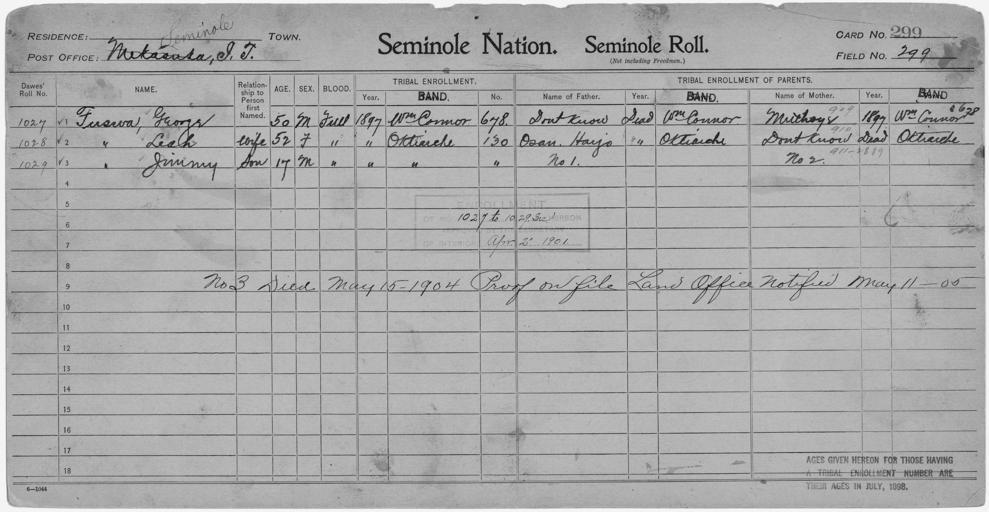 RESIDENCE: Seminole TOWN.
POST OFFICE: Mekasuka, I. T.
Seminole Nation. Seminole Roll.
(Not including Freedmen.)
CARD NO. 299
FIELD NO. 299
Dawes' Roll No. NAME. Relationship to Person first Named. AGE. SEX. BLOOD. TRIBAL ENROLLMENT. TRIBAL ENROLLMENT OF PARENTS.
Year. BAND. No. Name of Father. Year. BAND. Name of Mother. Year. BAND.
1027 √ 1 Fuswa, George 50 M Full 1897 Wm Connor 678 Dont Know Dead Wm Connor 1897 Wm Connor
1028 √ 2 " Leah wife 52 F " " Oktiarche 130 Osan Harjo " Oktiarche Dont Know Dead Oktiarche
1029 √ 3 " Jimmy Son 17 M " " " " No 1. No 2.
4
5
ENROLLMENT
6 1027 to 1029 Incl
7 OF INTERIOR Apr. 2" 1901
8
9 No 3 Died May 15-1904 Proof on file Land Office Notified May 11-05
10
11
12
13
14
15
16
17
18
AGES GIVEN HEREON FOR THOSE HAVING
A TRIBAL ENROLLMENT NUMBER ARE
THEIR AGES IN JULY, 1898.
6—1044